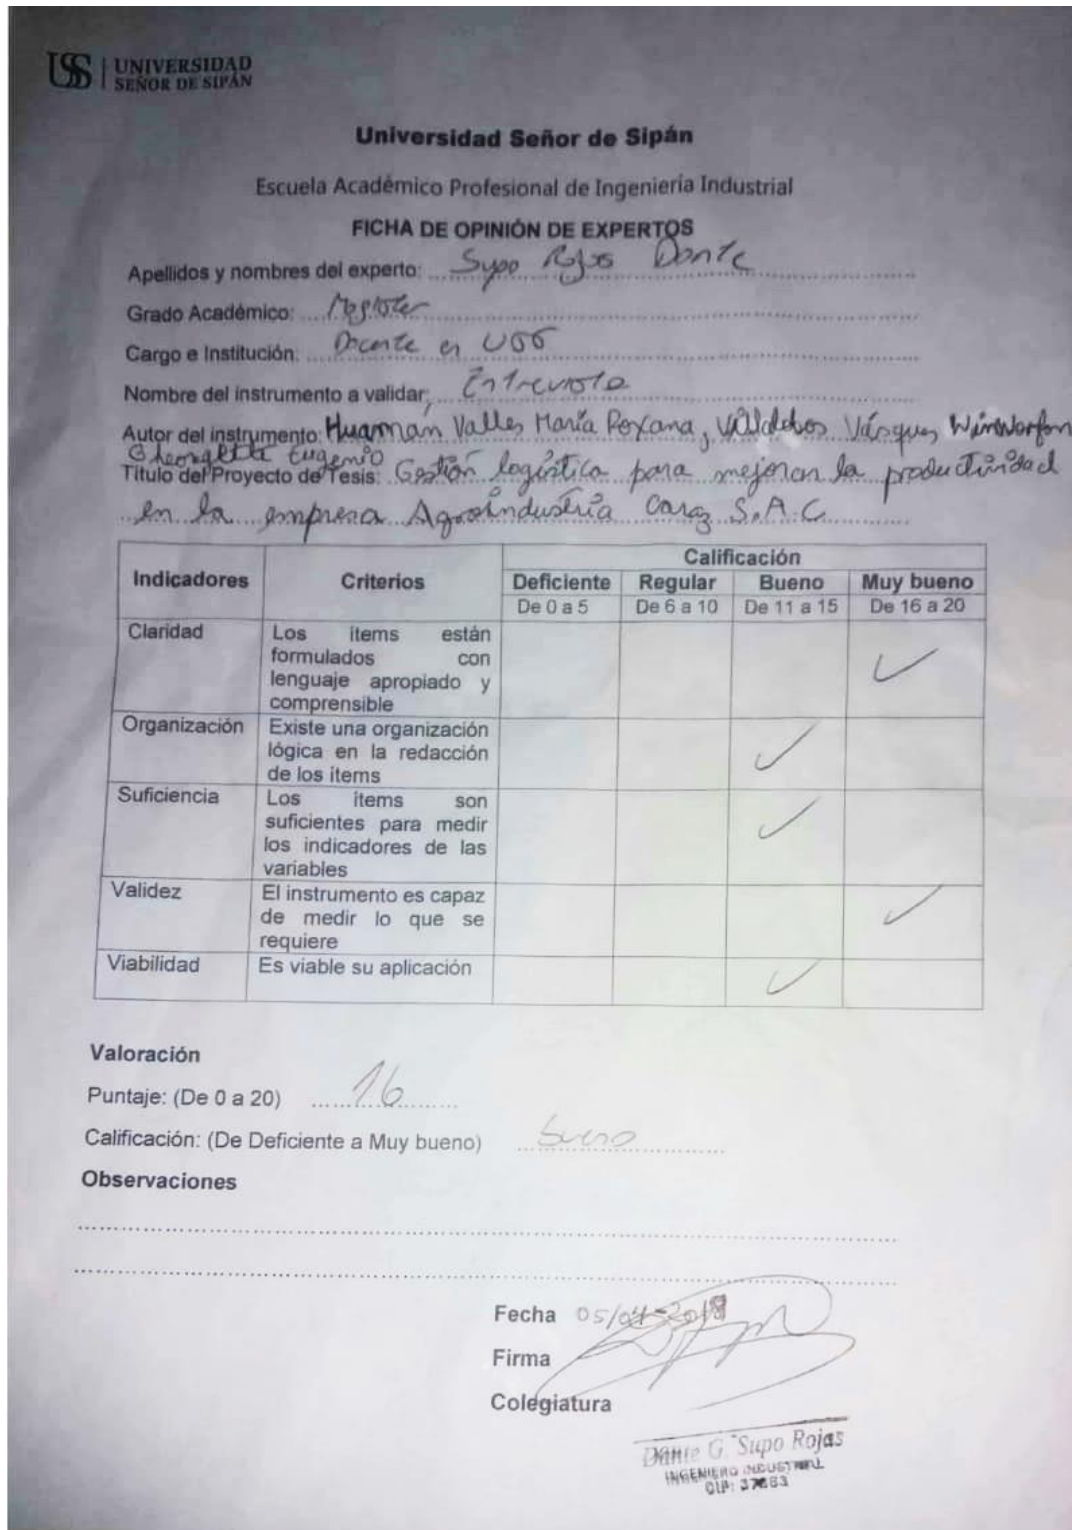 USS UNIVERSIDAD
SEÑOR DE SIPÁN
Universidad Señor de Sipán
Escuela Académico Profesional de Ingeniería Industrial
FICHA DE OPINIÓN DE EXPERTOS
Apellidos y nombres del experto: Supo Rojas Dante
Grado Académico: Magister
Cargo e Institución: Docente en USS
Nombre del instrumento a validar: Entrevista
Autor del instrumento: Huaman Valles María Roxana, Vásquez
Eugenio
Título del Proyecto de Tesis: Gestión logística para mejorar la productividad
en la empresa Agroindustria Caraz S.A.C
Indicadores Criterios Calificación
Deficiente Regular Bueno Muy bueno
De 0 a 5 De 6 a 10 De 11 a 15 De 16 a 20
Claridad Los items están
formulados con
lenguaje apropiado y
comprensible ✓
Organización Existe una organización
lógica en la redacción
de los items ✓
Suficiencia Los items son
suficientes para medir
los indicadores de las
variables ✓
Validez El instrumento es capaz
de medir lo que se
requiere ✓
Viabilidad Es viable su aplicación ✓
Valoración
Puntaje: (De 0 a 20) 16
Calificación: (De Deficiente a Muy bueno) bueno
Observaciones
Fecha
Firma
Colegiatura
Dante G. Supo Rojas
INGENIERO INDUSTRIAL
CIP: